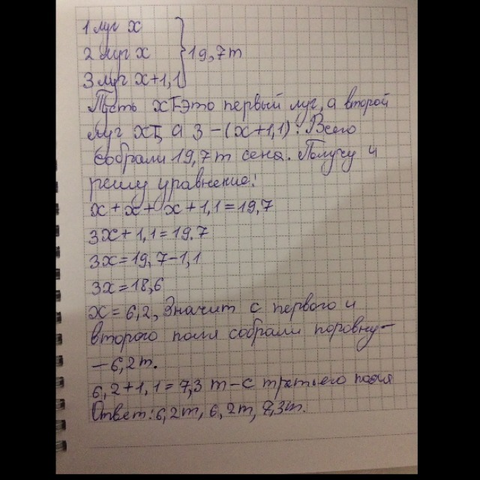 1 луг х
2 луг х } 19,7т
3 луг х+1,1
Пусть хт-это первый луг, а второй
луг хт, а 3 - (х+1,1). Всего
собрали 19,7т сена. Получу и
решу уравнение:
х+х+х+1,1=19,7
3х+1,1=19,7
3х=19,7-1,1
3х=18,6
х=6,2, Значит с первого и
второго поля собрали поровну-
-6,2т.
6,2+1,1=7,3т-с третьего поля
Ответ: 6,2т, 6,2т, 7,3т.